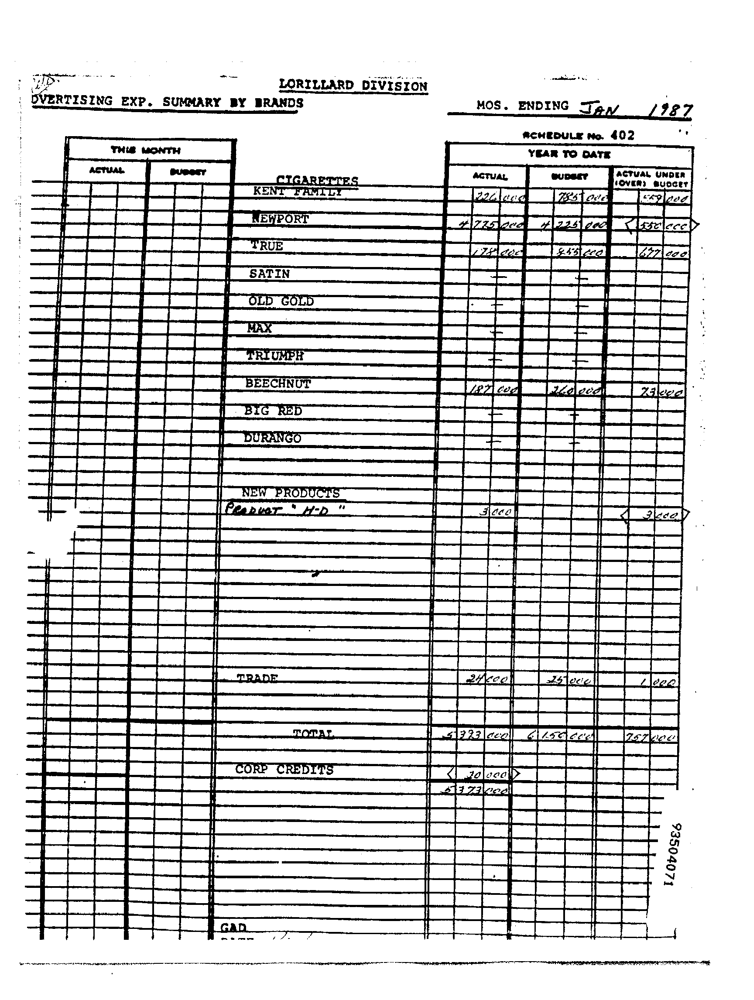 LORILLARD DIVISION
DVERTISING EXP. SUMMARY BY BRANDS
MOS. ENDING JAN 1987
SCHEDULE No. 402
THIS MONTH YEAR TO DATE
ACTUAL BUDGET CIGARETTES ACTUAL BUDGET ACTUAL UNDER
(OVER) BUDGET
KENT FAMILY 226 000 785 000 559 000
NEWPORT 4 775 000 4 225 000 < 550 000 >
TRUE 178 000 855 000 677 000
SATIN — —
OLD GOLD — —
MAX — —
TRIUMPH — —
BEECHNUT 187 000 260 000 73 000
BIG RED — —
DURANGO — —
NEW PRODUCTS
PRODUCT "H-D" 3 000 < 3 000 >
TRADE 24 000 25 000 1 000
TOTAL 5 393 000 6 150 000 757 000
CORP CREDITS < 20 000 >
5 373 000
93504071
GAD